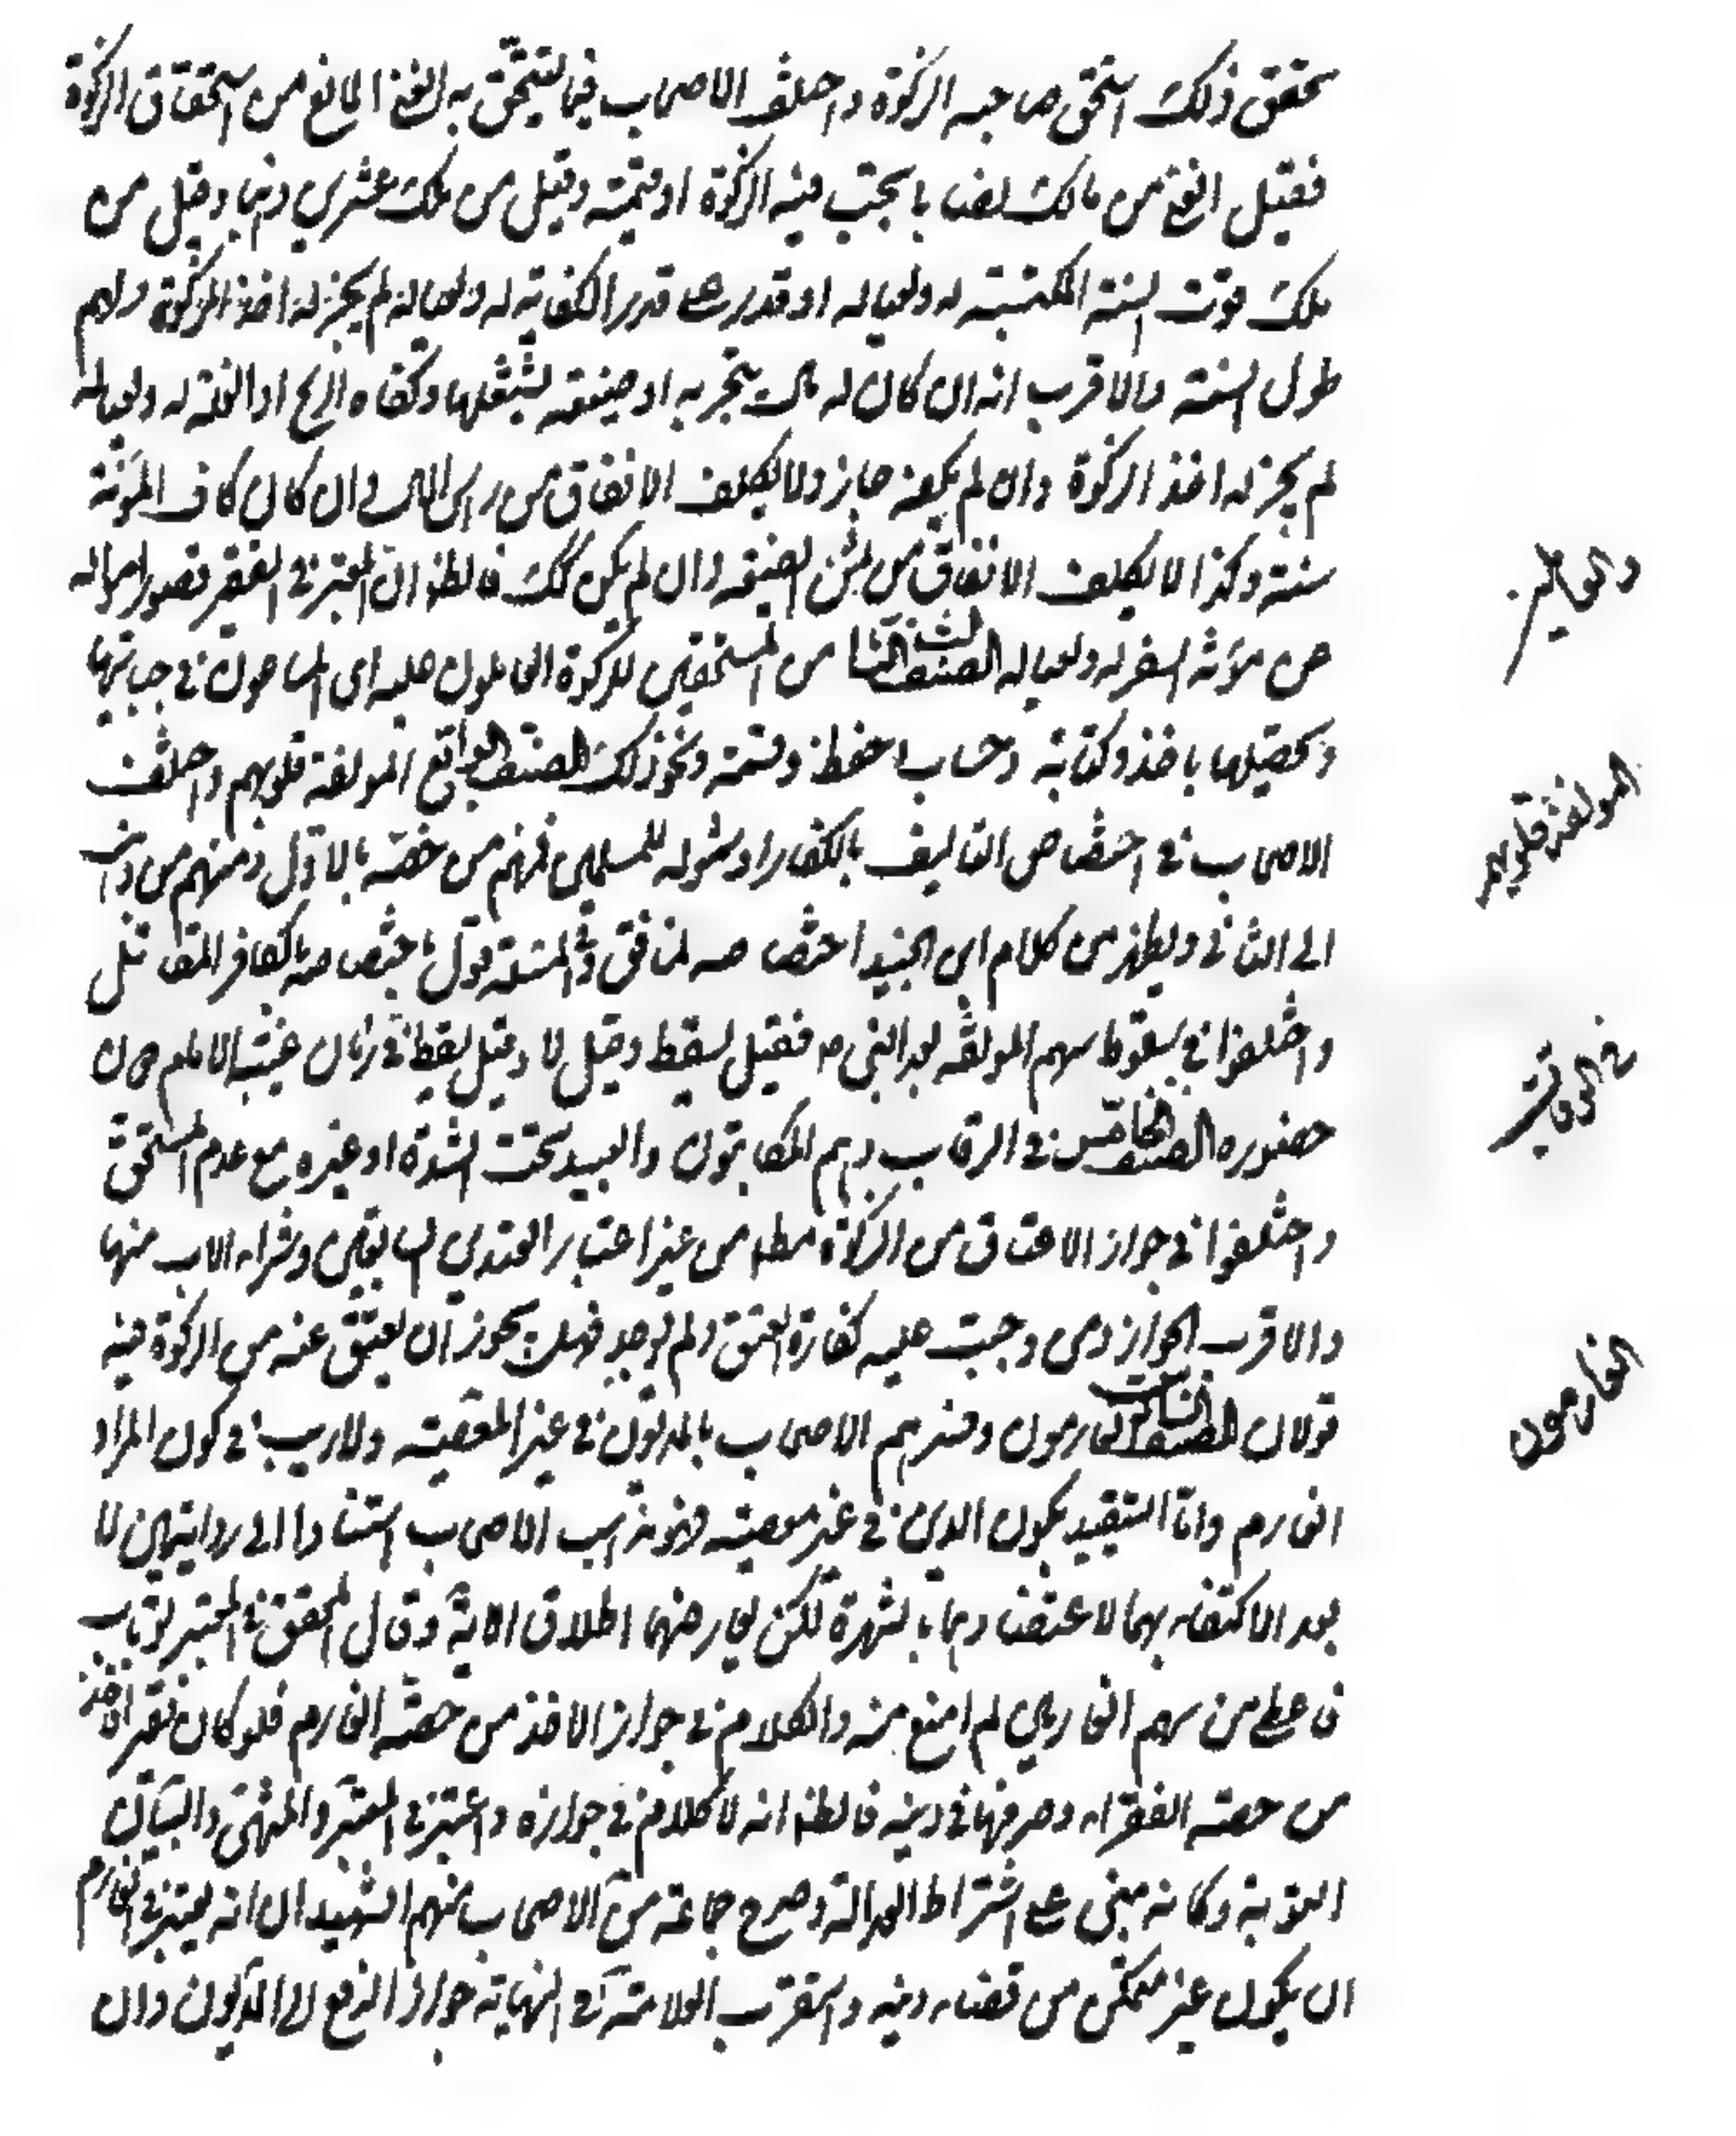 تحقق ذلك استحق صاحبه الزكوة واختلف الاصحاب فيما يتحقق به الغنى المانع من استحقاق الزكوة
فقيل الغنى من مالك نصابا يجب فيه الزكوة او قيمته وقيل من ملك عشرين دينارا وقيل من
ملك قوت السنة المكتسبة له ولعياله او قدر على قدر الكفاية له ولعياله لم يجز له اخذ الزكوة ولهم
طول السنة والاقرب انه ان كان له مال يتجر به او ضيعة يشتغلها وكفاه الربح او الغلة له ولعياله
لم يجز له اخذ الزكوة وان لم يكفه جاز ولا يكلف الانفاق من راس المال وان كان كاف المؤنة
سنة وكذا لا يكلف الانفاق من ثمن الضيعة وان لم يكن كك فالظ ان المعتبر في الفقير قصور امواله
عن مؤنة السفر له ولعياله الصنف الثالث من المستحقين للزكوة العاملون عليه اى الساعون في جبايتها
وتحصيلها باخذ وكتابة وحساب وحفظ وقسمة ونحو ذلك الصنف الرابع المولفة قلوبهم واختلف
الاصحاب في اختصاص التاليف بالكفار او شموله للمسلمين فمنهم من خصه بالاول ومنهم من ذهب
الى الثانى ويظهر من كلام ابن الجنيد اختصاصه لمنافق وفى المسئلة قول باختصاصه بالكافر المقاتل
واختلفوا في سقوط سهم المولفة بعد النبى ص فقيل يسقط وقيل لا وقيل يسقط في زمان غيبة الامام دون
حضوره الصنف الخامس في الرقاب وهم المكاتبون والعبيد تحت الشدة او غيره مع عدم المستحق
واختلفوا في جواز الاعتاق من الزكوة مطلقا من غير اعتبار القيدين السابقين وشراء الاب منها
والاقرب الجواز ومن وجبت عليه كفارة العتق ولم يوجد فهل يجوز ان يعتق عنه من الزكوة فيه
قولان الصنف السادس الغارمون وفسرهم الاصحاب بالمدينون في غير المعصية ولا ريب في كون المراد
الغارم واما التقييد بكون الدين في غير معصية فهو مذهب الاصحاب استنادا الى روايتين لا
بعد الاكتفاء بهما لاعتضادهما بالشهرة لكن يعارضهما اطلاق الاية وقال المحقق في المعتبر لو تاب
فاعطى من سهم الغارمين لم امنع منه والكلام في جواز الاخذ من حصة الغارم فلو كان فقيرا فاخذ
من حصة الفقراء وصرفها في دينه فالظ انه لا كلام في جوازه واعتبر في المعتبر والمنتهى والبيان
التوبة وكانه مبنى على اشتراط العدالة وصرح جماعة من الاصحاب منهم الشهيدان انه يعتبر في الغارم
ان يكون غير متمكن من قضاء دينه واستقرب العلامة في النهاية جواز الدفع الى المديون وان
والعاملين
المولفة قلوبهم
في الرقاب
الغارمون